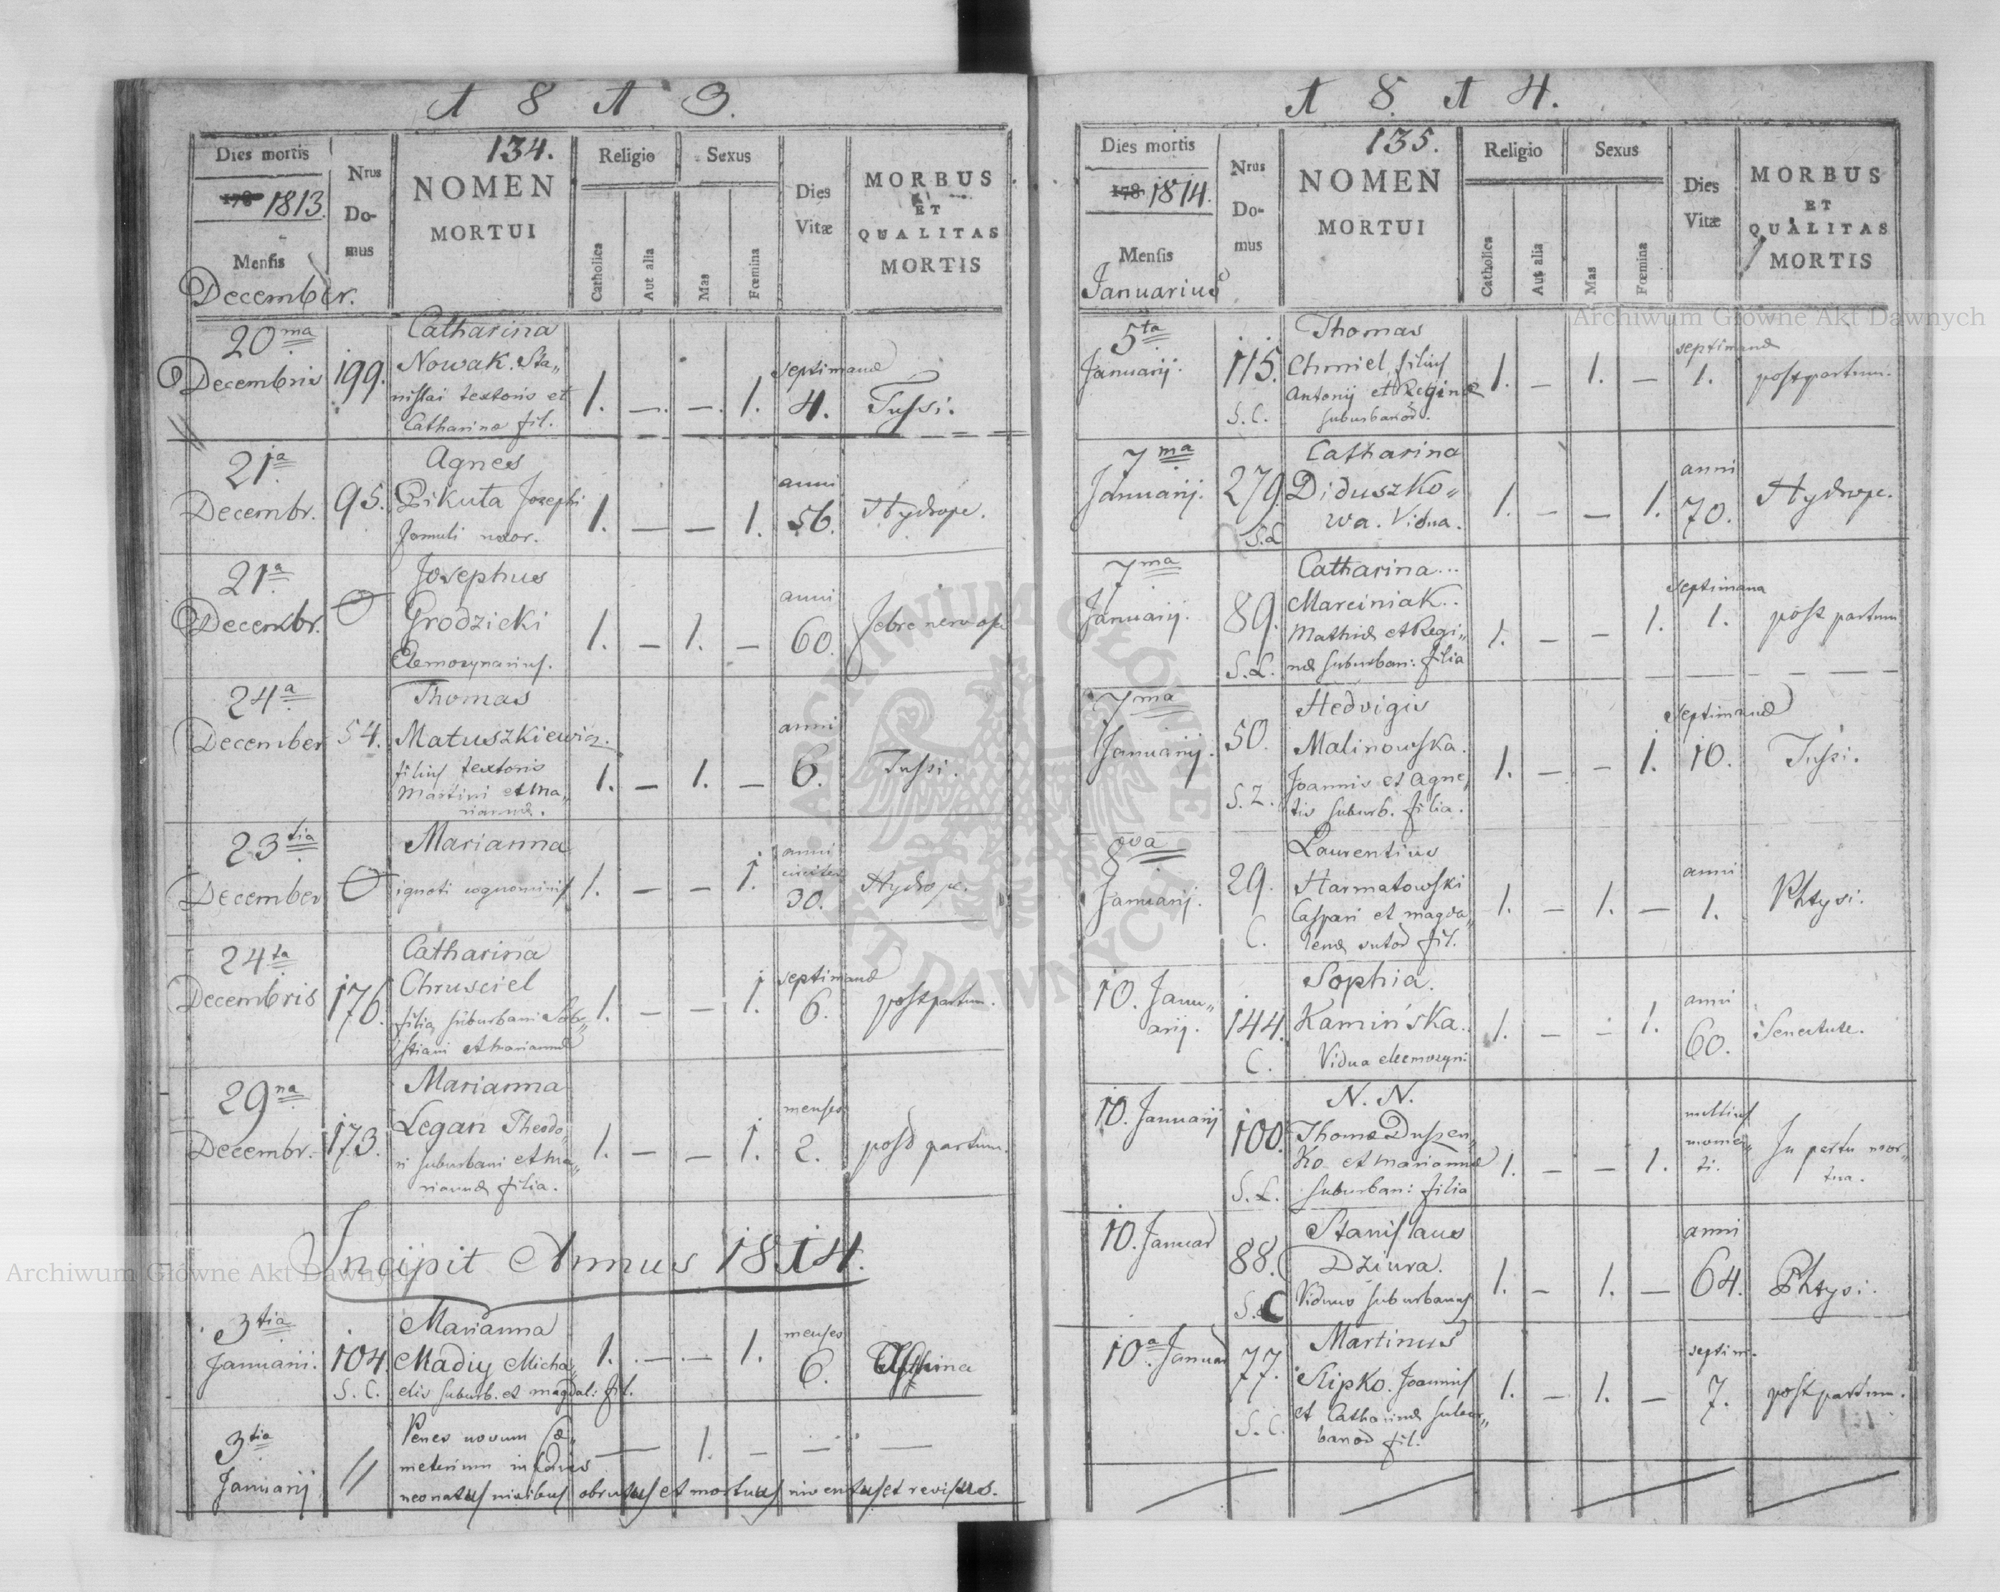 1 8 1 3.
134.
Dies mortis
178 1813.
Mensis
December.
Nrus
Do-
mus
NOMEN
MORTUI
Religio
Catholica
Aut alia
Sexus
Mas
Fœmina
Dies
Vitæ
MORBUS
ET
QUALITAS
MORTIS
20ma
Decembris
199.
Catharina
Nowak. Sta„
nislai textoris et
Catharinæ fil.
1. — — 1.
septimanæ
4.
Tussi.
21a
Decembr.
95.
Agnes
Pikuta Josephi
famuli uxor.
1. — — 1.
anni
56.
Hydrope.
21a
Decembr.
Josephus
Grodzicki
Elemozynarius.
1. — 1. —
anni
60.
febre nervosa
24a
December
54.
Thomas
Matuszkiewicz.
filius textoris
Martini et Ma„
riannæ.
1. — 1. —
anni
6.
Tussi.
23tia
December
Marianna
ignoti cognominis
1. — — 1.
anni
circiter
30.
Hydrope.
24ta
Decembris
176.
Catharina
Chrusciel
filia suburbani Seb„
stiani et Mariannæ
1. — — 1.
septimanæ
6.
post partum.
29na
Decembr.
173.
Marianna
Legan Theodo„
ri suburbani et Ma„
riannæ filia.
1. — — 1.
menses
2.
post partum.
Incipit Annus 1814.
3tia
Januarii.
104.
S. C.
Marianna
Madiy Micha„
elis suburb. et Magdal: fil.
1. — — 1.
menses
6.
3tia
Januarij
//
Penes novum Cæ„
meterium
neonatus nivibus obrutus et mortuus inventus et revisus.
— 1. — — —
1 8 1 4.
135.
Dies mortis
178 1814.
Mensis
Januarius
Nrus
Do-
mus
NOMEN
MORTUI
Religio
Catholica
Aut alia
Sexus
Mas
Fœmina
Dies
Vitæ
MORBUS
ET
QUALITAS
MORTIS
5ta
Januarij.
115.
S. C.
Thomas
Chmiel, filius
Antonij et Reginæ
suburbanor.
1. — 1. —
septimanæ
1.
post partum.
7ma
Januarij.
279.
S. L
Catharina
Diduszko„
wa. Vidua.
1. — — 1.
anni
70.
Hydrope.
7ma
Januarij.
89.
S. L.
Catharina..
Marciniak..
Mathiæ et Regi„
næ suburban: filia
1. — — 1.
septimana
1.
post partum
7ma
Januarij.
50.
S. L.
Hedvigis
Malinowska.
Joannis et Agne„
tis suburb. filia.
1. — — 1.
septimanæ
10.
Tussi.
8va
Januarij.
29.
C.
Laurentius
Harmatowski
Caspari et Magda„
lenæ sutor. fil.
1. — 1. —
anni
1.
Phtysi.
10. Janu„
arij.
144.
C.
Sophia.
Kamińska.
Vidua eleemozyn:
1. — — 1.
anni
60.
Senectute.
10. Januarij
100.
S. L.
N. N.
Thomæ Duszen„
ko et Mariannæ
suburban: filia
1. — — 1.
nullius
momen„
ti.
In partu mor„
tua.
10. Januar
88.
S. C
Stanislaus
Dziura.
Viduus suburbanus
1. — 1. —
anni
64.
Phtysi.
10a. Januar
77.
S. C.
Martinus
Slipko. Joannis
et Catharinæ subur„
banor. fil.
1. — 1. —
septim.
7.
post partum.
Archiwum Główne Akt Dawnych
Archiwum Główne Akt Dawnych
ARCHIWUM GŁÓWNE AKT DAWNYCH